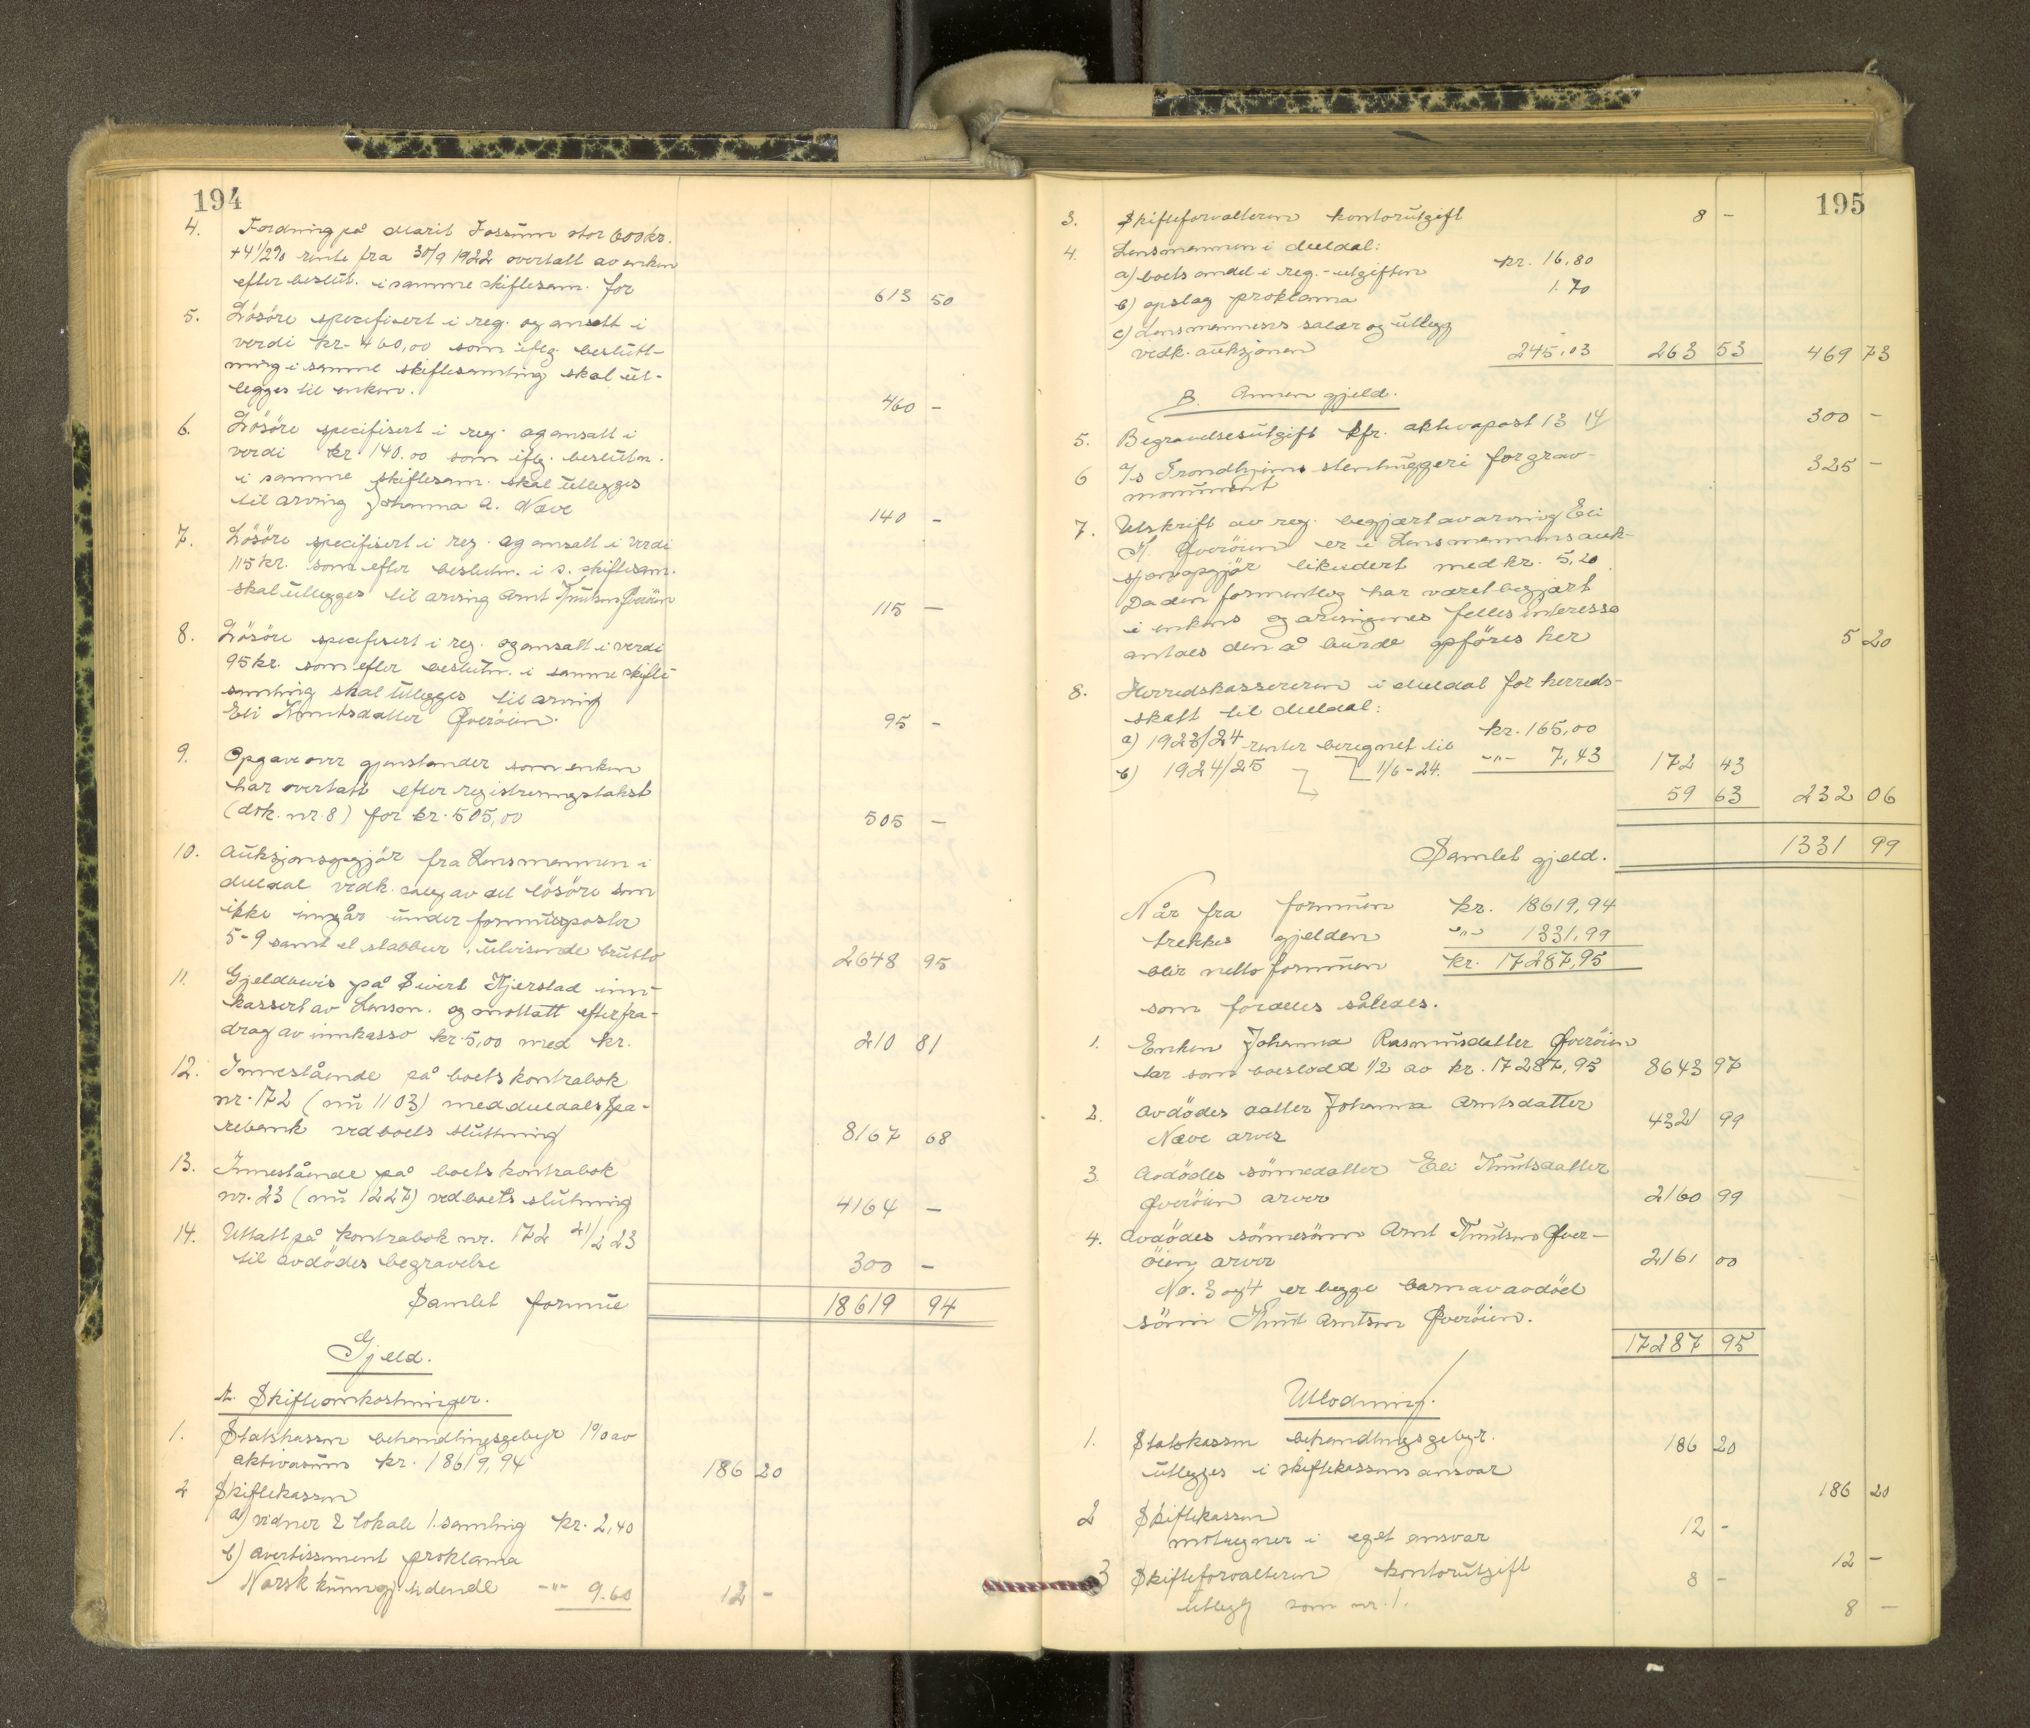 194
4. Fordring på Marit Fossum stor 600 kr.
+ 4 1/2 % rente fra 30/9 1922 overtatt av enken
efter beslut. i samme skiftesam. for 613 50
5. Lösöre specifisert i reg. og ansatt i
verdi kr. 460,00 som iflg. beslutt-
ning i samme skiftesamling skal ut-
legges til enken. 460 –
6. Lösöre specifisert i reg. og ansatt i
verdi kr 140.00 som iflg. beslutn.
i samme skiftesam. skal utlegges
til arving Johanna A. Næve 140 –
7. Lösöre specifisert i reg. og ansatt i verdi
115 kr. som efter beslutn. i s. skiftesam.
skal utlegges til arving Arnt Knutsen Øveröien 115 –
8. Lösöre specifisert i reg. og ansatt i verdi
95 kr. som efter beslutn. i samme skifte
samling skal utlegges til arving
Eli Knutsdatter Øveröien. 95 –
9. Opgave over gjenstander som enken
har overtatt efter registreringstakst
(dok. nr. 8) for kr. 505,00 505 –
10. Auksjonsopgjör fra Lensmannen i
Meldal vedk. salg av det lösöre som
ikke inngår under formuesposter
5-9 samt et stabbur, utvisende brutto 2648 95
11. Gjeldbevis på Sivert Kjerstad inn-
kassert av Lensm. og mottatt efter fra-
drag av innkasso kr. 5,00 med kr. 210 81
12. Innestående på boets kontrabok
nr. 172 (nu 1103) med Meldals Spa-
rebank ved boets slutning 8167 68
13. Innestående på boets kontrabok
nr. 23 (nu 1227) ved boets slutning 4164 –
14. Uttatt på kontrabok nr. 172 21/2 23
til avdödes begravelse 300 –
Samlet formue 18619 94
Gjeld.
A. Skifteomkostninger.
1. Statskassen behandlingsgebyr 1% av
aktivasum kr. 18619,94 186 20
2 Skiftekassen
a) vidner & lokale 1. samling kr. 2,40
b) avertissement proklama
Norsk kunngj. tidende -"- 9.60 12 –
195
3. Skifteforvalteren kontorutgift 8 –
4. Lensmannen i Meldal:
a) boets andel i reg.-utgiften kr. 16,80
b) opslag proklama 1.70
c) Lensmannens salær og utlegg
vedk. auksjonen 245,03 263 53 469 73
B. Annen gjeld.
5. Begravelsesutgift kfr. aktivapost 13 14 300 –
6 A/s Trondhjems stenhuggeri for grav-
monument 325 –
7. Utskrift av reg. begjært av arving Eli
K. Øveröien er i Lensmannens auk-
sjonsopgjör likvidert med kr. 5,20
Da den formentlig har været begjært
i enkens og arvingenes felles interesse
antaes den å burde opföres her 5 20
8. Herredskassereren i Meldal for herreds-
skatt til Meldal:
a) 1923/24 kr. 165,00
renter beregnet til 1/6-24. -"- 7,43 172 43
b) 1924/25 59 63 232 06
Samlet gjeld. 1331 99
Når fra formuen kr. 18619,94
trekkes gjelden -"- 1331,99
blir netto formuen kr. 17287,95
som fordeles således.
1. Enken Johanna Rasmusdatter Øveröien
tar som boeslodd 1/2 av kr. 17287,95 8643 97
2. Avdödes datter Johanna Arntsdatter
Næve arver 4321 99
3. Avdödes sönnedatter Eli Knutsdatter
Øveröien arver 2160 99
4. Avdödes sönnesönn Arnt Knutsen Øver-
öien arver 2161 00
No. 3 og 4 er begge barn av avdöd
sönn Knut Arntsen Øveröien.
17287 95
Utlodning.
1. Statskassen behandlingsgebyr. 186 20
utlegges i skiftekassens ansvar 186 20
2 Skiftekassen 12 –
motregner i eget ansvar 12 –
3 Skifteforvalteren kontorutgift 8 –
utlegg som nr. 1. 8 –